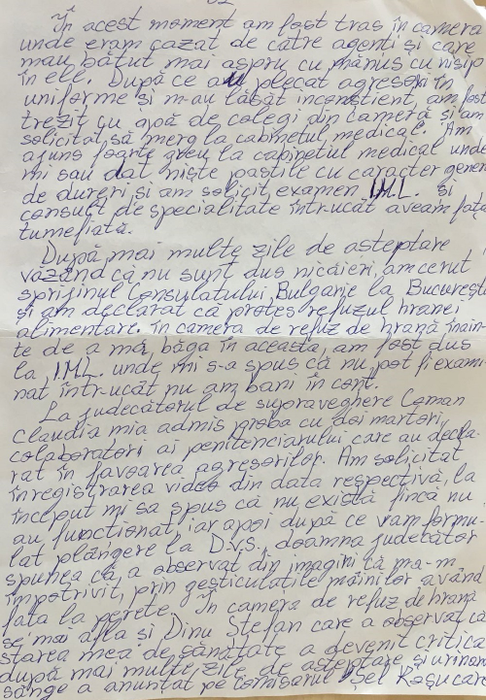 În acest moment am fost tras în camera
unde eram cazat de către agenți și care
mau bătut mai aspru cu mănuș cu nisip
în ele. După ce au plecat agresori în
uniforme și m-au lăsat inconștient, am fost
trezit cu apă de colegi din cameră și am
solicitat să merg la cabinetul medical. Am
ajuns foarte greu la cabinetul medical unde
mi sau dat niște pastile cu caracter gener
de dureri și am solicit examen I.M.L. și
consult de specialitate întrucăt aveam fața
tumefiată.
După mai multe zile de așteptare
văzând că nu sunt dus nicăieri, am cerut
sprijinul Consulatului Bulgarie la București
și am declarat ca protes refuzul hranei
alimentare. În camera de refuz de hrană înain-
te de a mă băga în aceasta, am fost dus
la I.M.L. unde mi s-a spus că nu pot fi exami-
nat într-ucăt nu am bani în cont.
La judecătorul de supraveghere Coman
Claudia mia admis proba cu doi martori,
colaboratori ai penitenciarului care au decla-
rat în favoarea agresorilor. Am solicitat
înregistrarea video din data respectivă, la
început mi sa spus că nu există fincă nu
au funcționat, iar apoi după ce vam formu-
lat plângere la D.v.s., doamna judecător
spunea că a observat din imagini că ma-m
împotrivit, prin gesticulațile mâinilor având
fața la perete. În camera de refuz de hrană
se mai afla și Dinu Ștefan care a observat că
starea mea de sănătate a devenit critica
după mai multe zile de așteptare și urinam
sânge a anunțat pe comisarul șef Kașucare